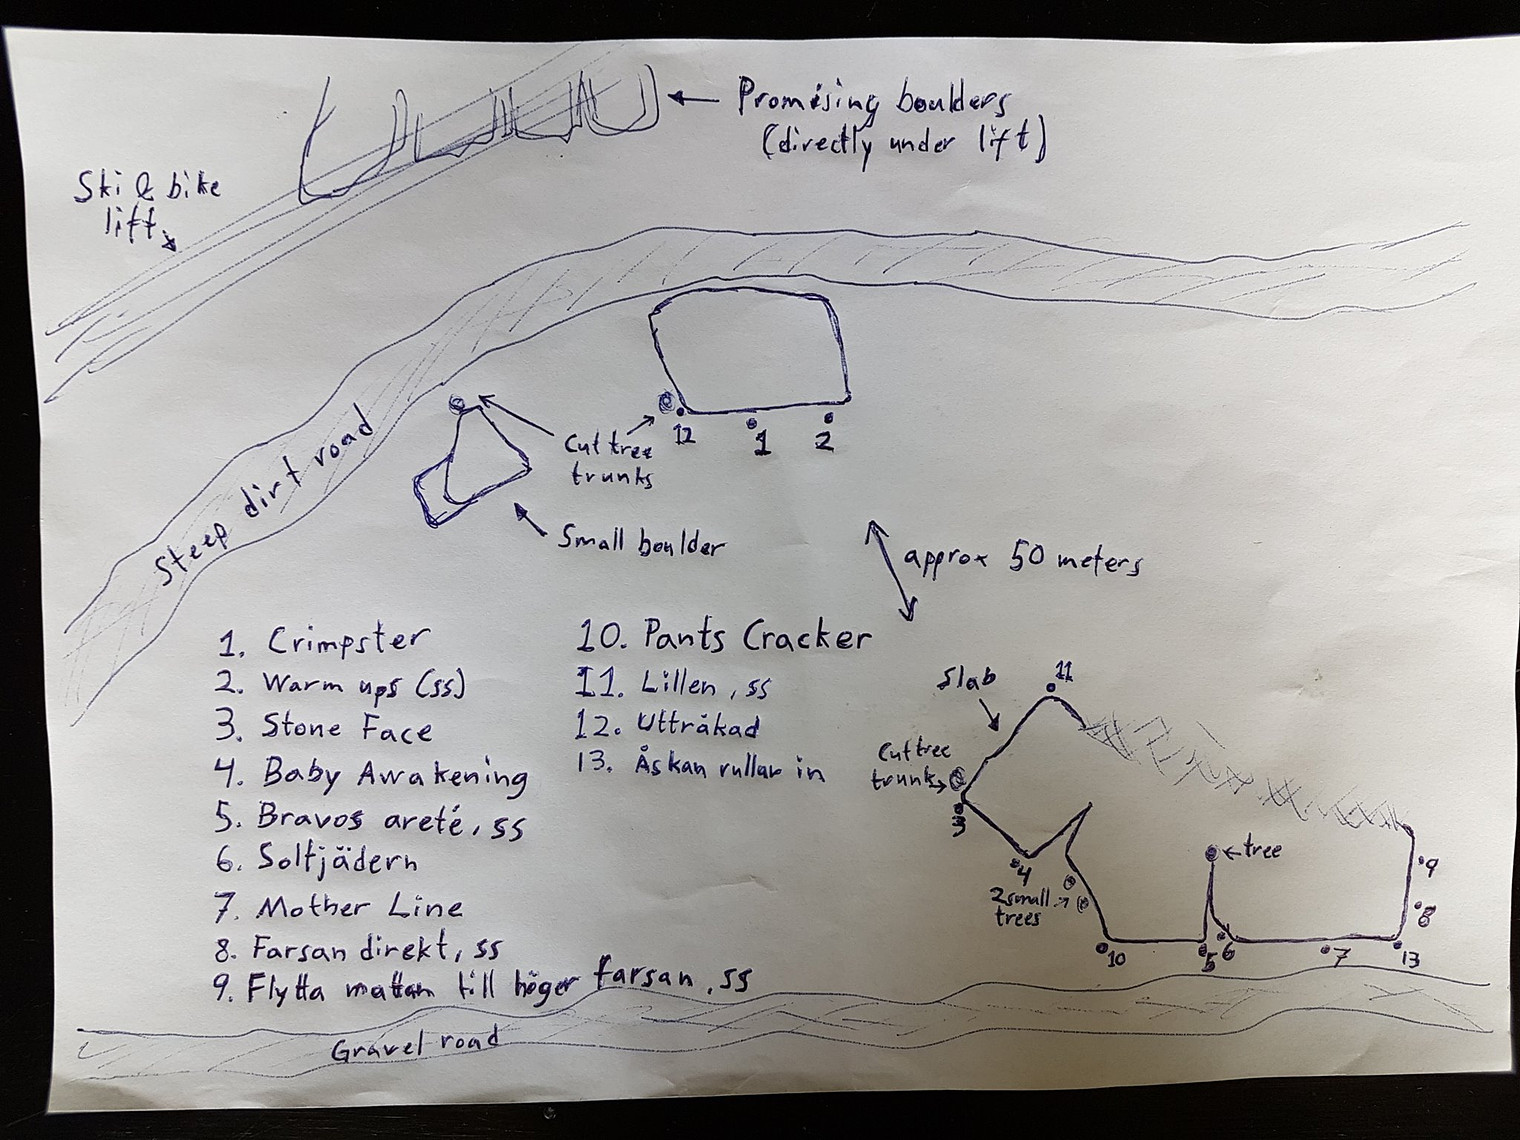 Promising boulders
(directly under lift)
Ski & bike
lift
Steep dirt road
12
1
2
Cut tree
trunks
Small boulder
approx 50 meters
1. Crimpster
2. Warm ups (ss)
3. Stone Face
4. Baby Awakening
5. Bravos areté, ss
6. Soltjädern
7. Mother Line
8. Farsan direkt, ss
9. Flytta mattan till höger farsan, ss
10. Pants Cracker
11. Lillen, ss
12. Uttråkad
13. Åskan rullar in
Slab
11
Cut tree
trunk
3
4
2 small
trees
tree
9
8
10
5
6
7
13
Gravel road